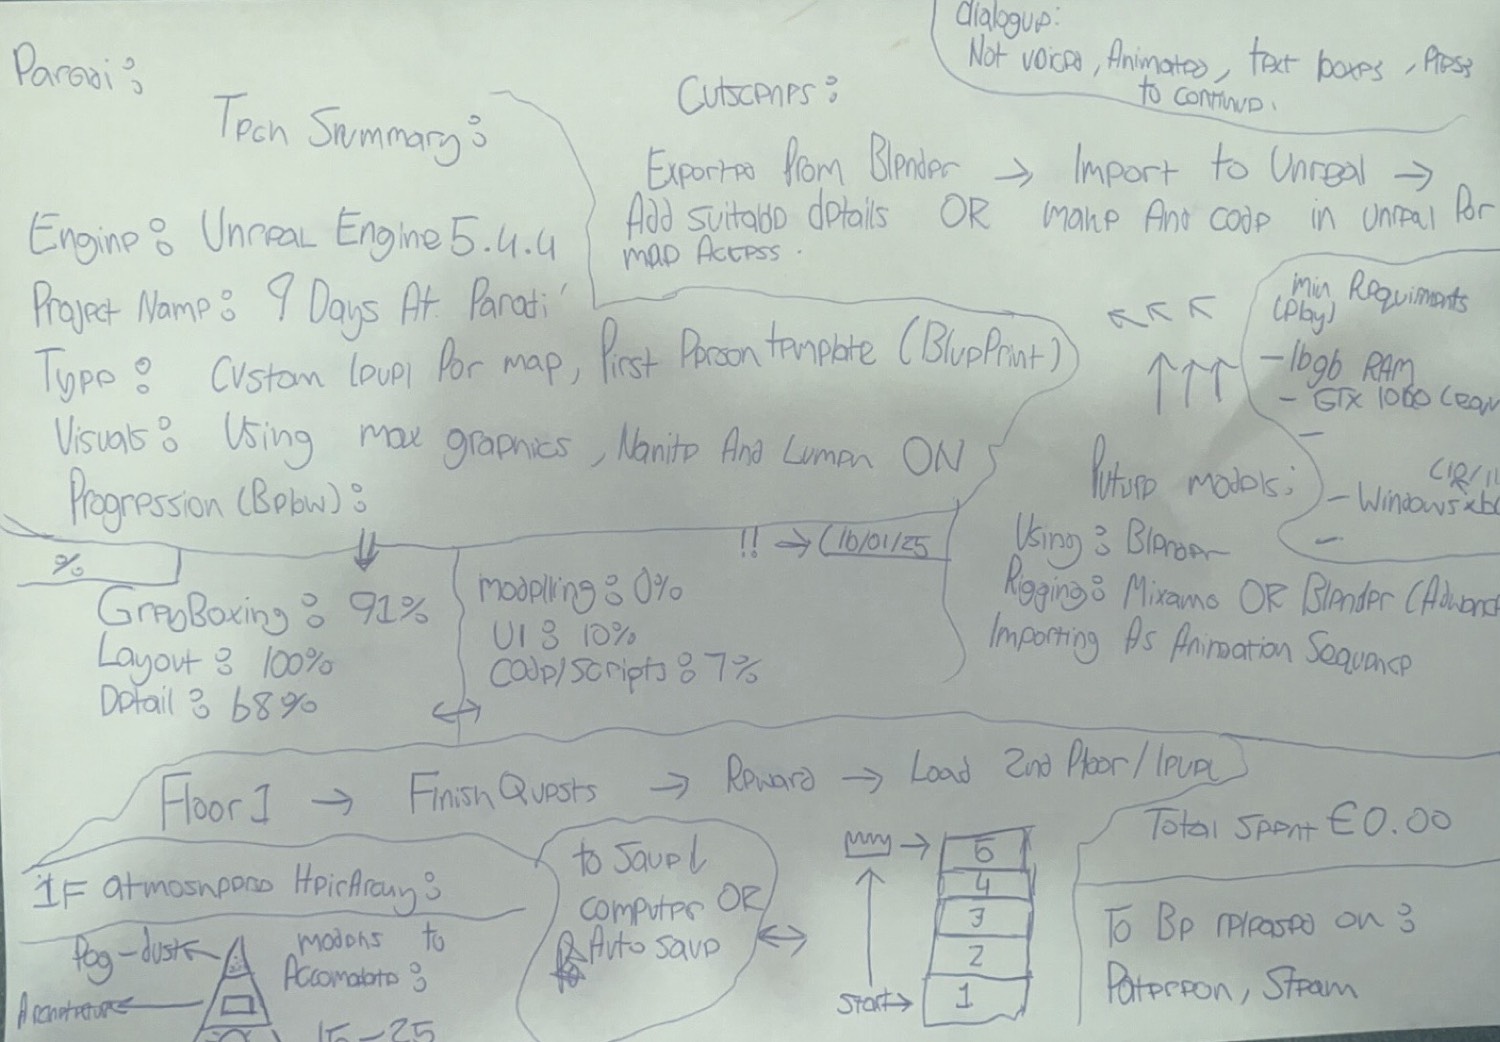 Parodi:
Tech Summary:
Engine: Unreal Engine 5.4.4
Project Name: 9 Days At Parodi
Type: Custom level for map, first Person template (BluePrint)
Visuals: Using max graphics, Nanite And Lumen ON
Progression (Below):
%
GreyBoxing: 91%
Layout: 100%
Detail: 68%
!! → (16/01/25
modelling: 0%
UI: 10%
Code/Scripts: 7%
dialogue:
Not voiced, Animated, text boxes, Press
to continue.
Cutscenes:
Exported from Blender → Import to Unreal →
Add suitable details OR make And code in Unreal for
map Access.
min Requiments
(Play)
- 16gb RAM
- GTX 1060
-
- Windows
-
Future models:
Using: Blender
Rigging: Mixamo OR Blender (Advanc
Importing As Animation Sequence
Floor 1 → Finish Quests → Reward → Load 2nd Floor/level
IF atmosphere Heirarcy:
Fog-dust
modens to
Accomodate:
15-25
to Save
computer OR
Auto save
5
4
3
2
Start → 1
Total Spent €0.00
To Be released on:
Patereon, Steam